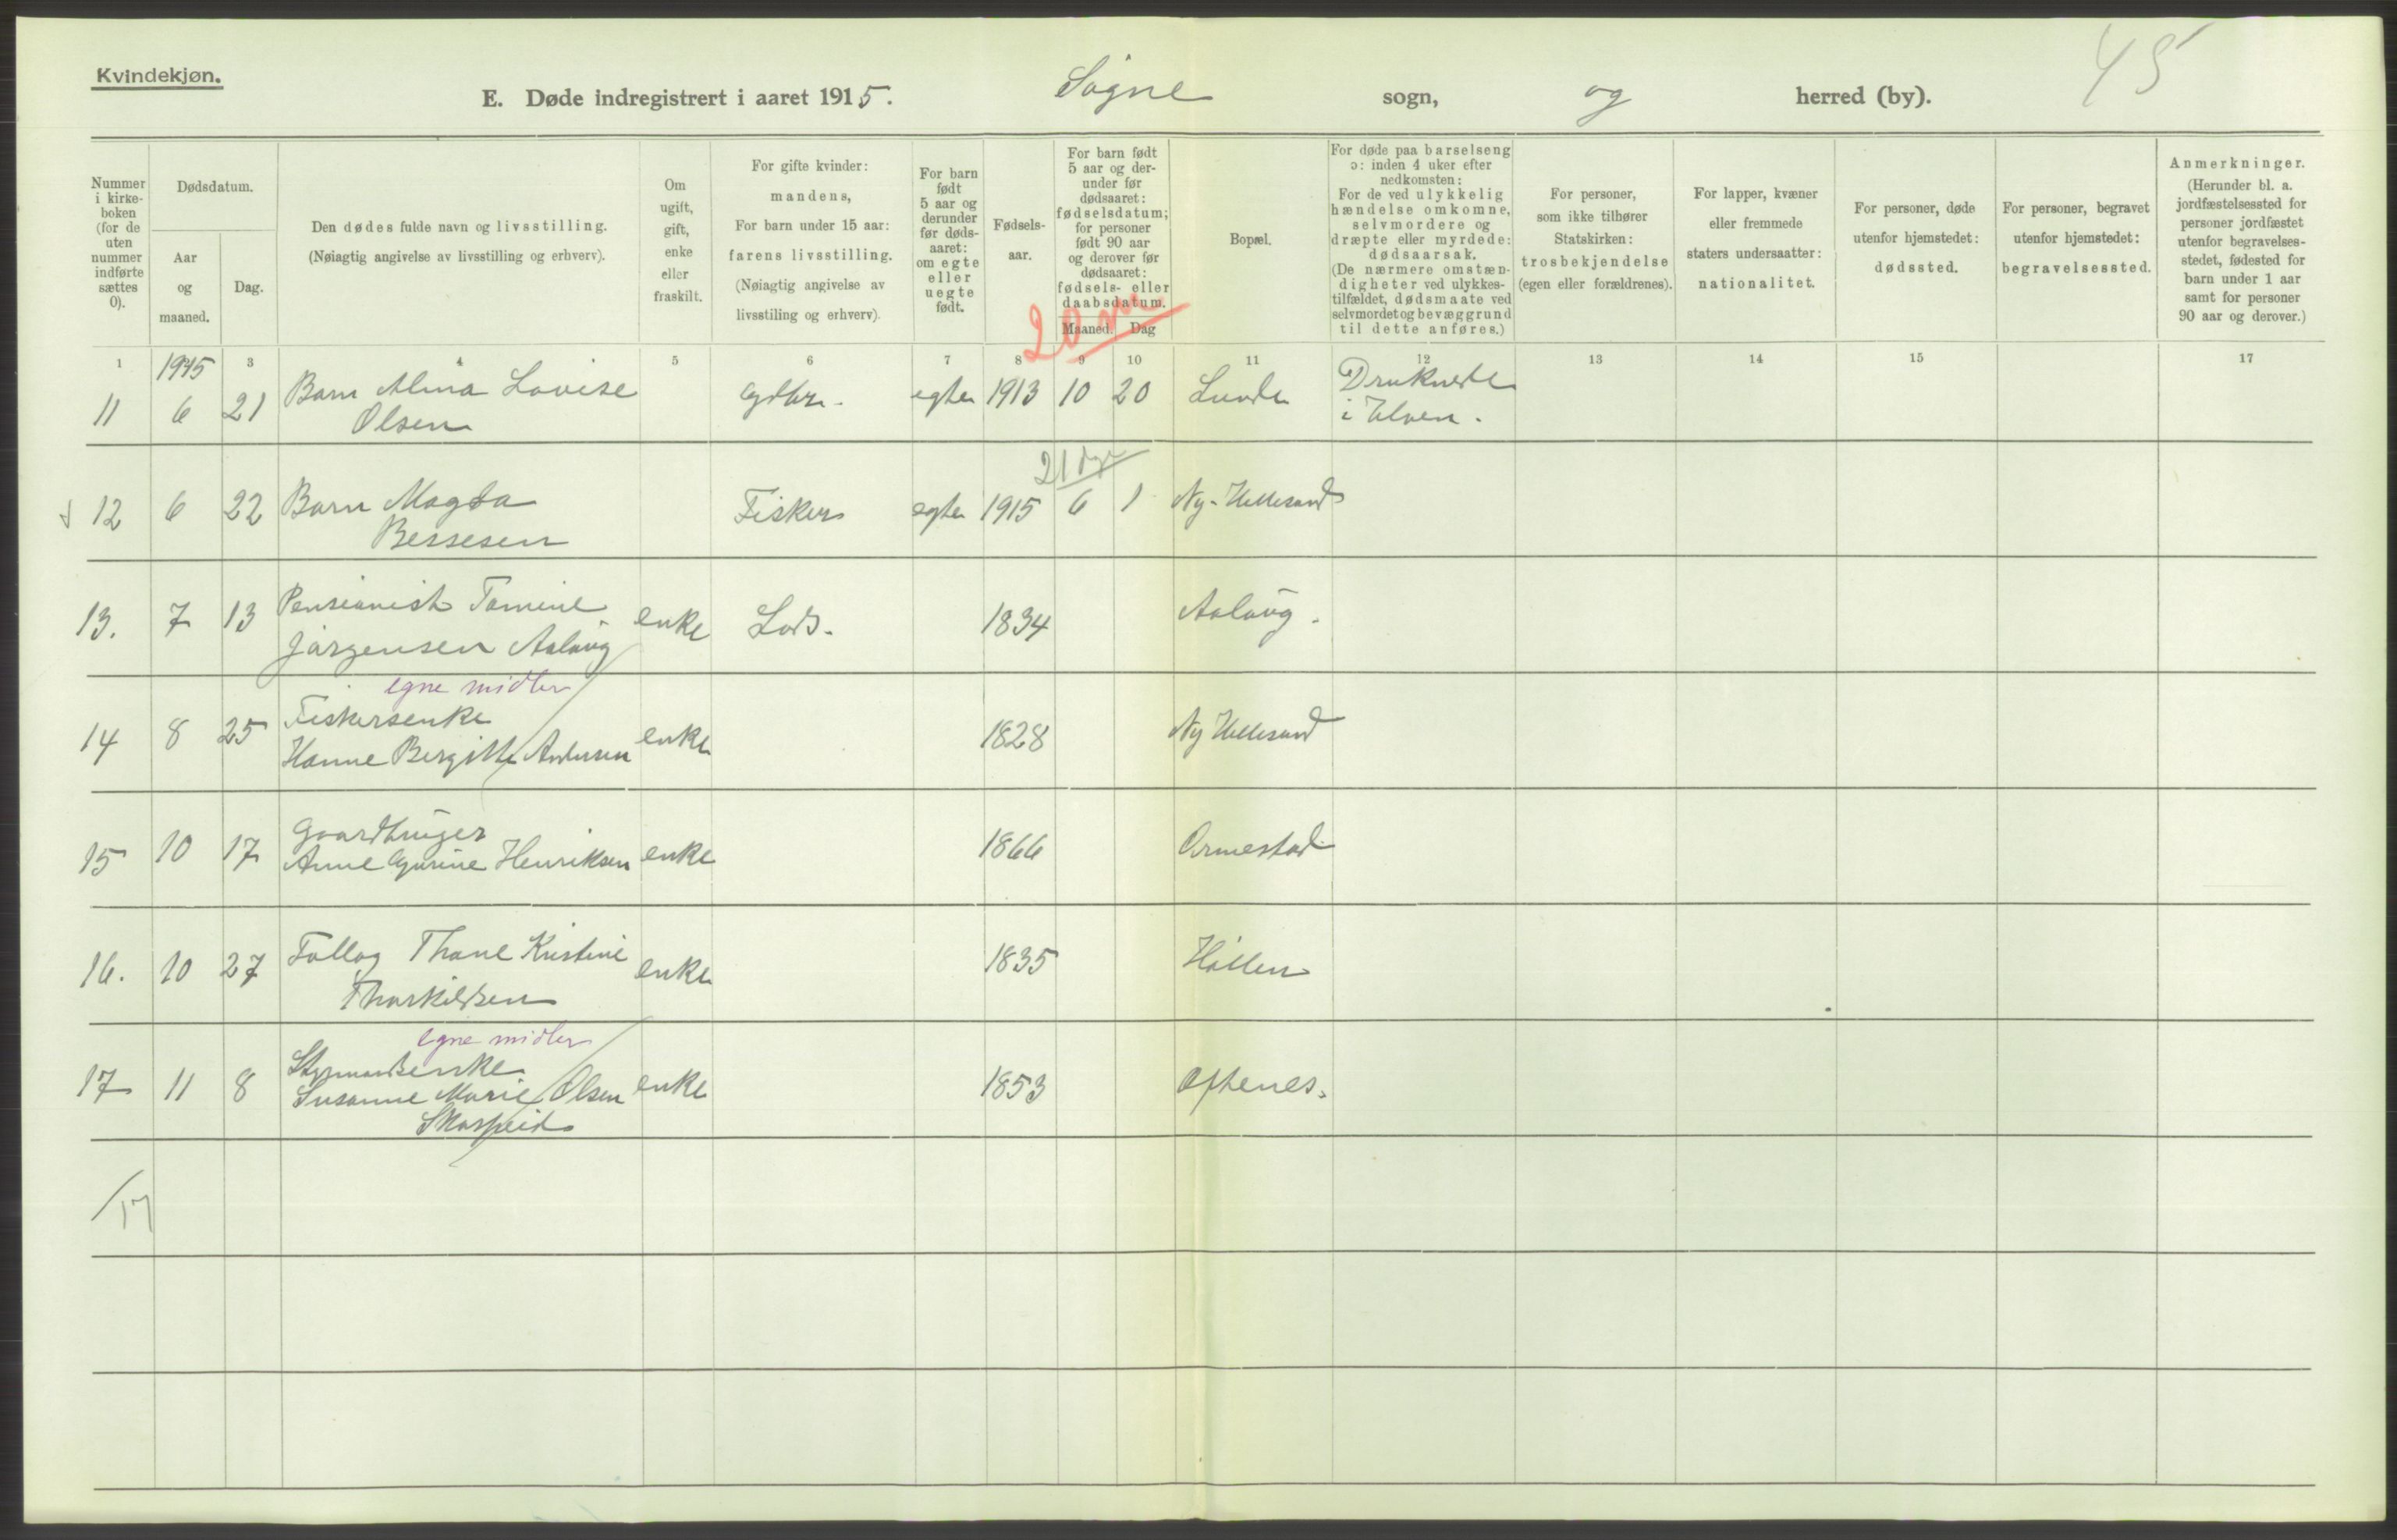 Kvindekjøn.
E. Døde indregistrert i aaret 1915. Søgne sogn, og herred (by).
45
Nummer i kirke-boken (for de uten nummer indførte sættes 0).
Dødsdatum.
Aar og maaned.
Dag.
Den dødes fulde navn og livsstilling.
(Nøiagtig angivelse av livsstilling og erhverv).
Om ugift, gift, enke eller fraskilt.
For gifte kvinder: mandens,
For barn under 15 aar: farens livsstilling.
(Nøiagtig angivelse av livsstiling og erhverv).
For barn født 5 aar og derunder før døds-aaret: om egte eller uegte født.
Fødsels-aar.
For barn født 5 aar og der-under før dødsaaret: fødselsdatum; for personer født 90 aar og derover før dødsaaret: fødsels- eller daabsdatum.
Maaned. Dag
Bopæl.
For døde paa barselseng ɔ: inden 4 uker efter nedkomsten:
For de ved ulykkelig hændelse omkomne, selvmordere og dræpte eller myrdede: dødsaarsak.
(De nærmere omstæn-digheter ved ulykkes-tilfældet, dødsmaate ved selvmordet og bevæggrund til dette anføres.)
For personer, som ikke tilhører Statskirken: trosbekjendelse (egen eller forældrenes).
For lapper, kvæner eller fremmede staters undersaatter: nationalitet.
For personer, døde utenfor hjemstedet: dødssted.
For personer, begravet utenfor hjemstedet: begravelsessted.
Anmerkninger.
(Herunder bl. a. jordfæstelsessted for personer jordfæstet utenfor begravelses-stedet, fødested for barn under 1 aar samt for personer 90 aar og derover.)
20 m
1 3 4 5 6 7 8 9 10 11 12 13 14 15 17
1915
11 6 21 Barn Alma Lovise Olsen egte 1913 10 20 Lunde Druknede i Elven.
21 dage
12 6 22 Barn Magda Bessesen Fisker egte 1915 6 1 Ny-Hellesund
13. 7 13 Pensionist Tomine Jørgensen Aaløug enke Lods. 1834 Aaløug.
egne midler
14 8 25 Fiskersenke Hanne Bergitte Andersen enke 1828 Ny Hellesund
15 10 17 Gaardbruger Anne Gurine Henriksen enke 1866 Ormestad
16. 10 27 Fattig Thone Kristine Thorkildsen enke 1835 Høllen
egne midler
17 11 8 Styrmandsenke Susanne Marie Olsen enke 1853 Oftenes.
/17